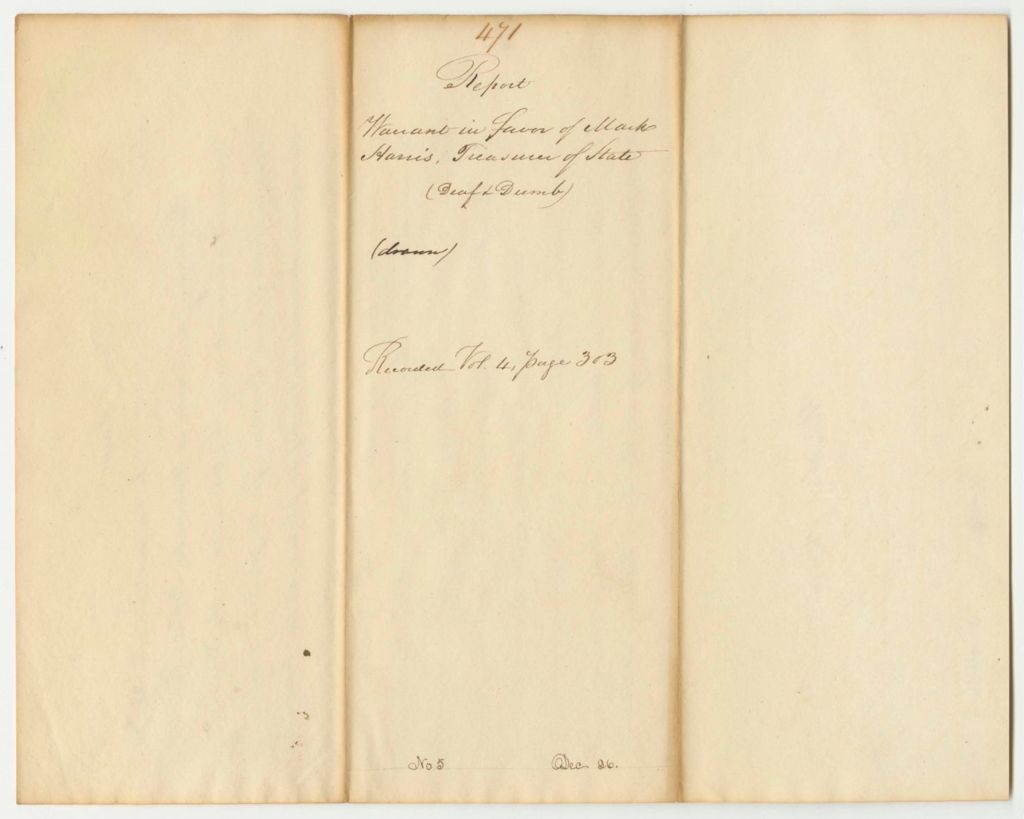 471
Report
Warrant in favor of Mark
Harris, Treasurer of State
(Deaf & Dumb)
(drawn)
Recorded Vol. 4, page 303
No 5 Dec 26.